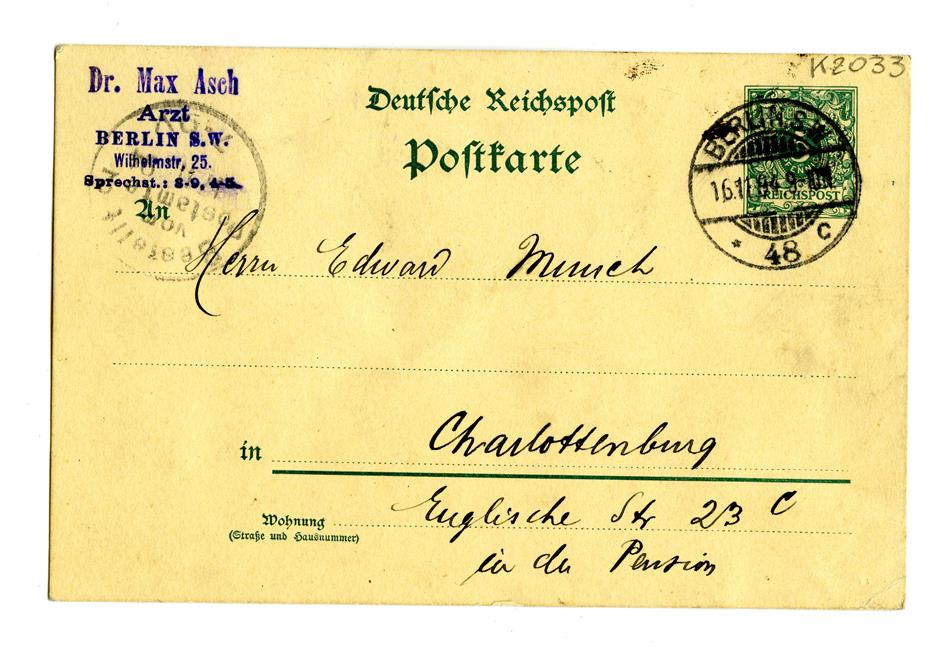 K2033
Dr. Max Asch
Arzt
BERLIN S.W.
Wilhelmstr. 25.
Sprechst.: 8-9, 4-5.
Deutsche Reichspost
Postkarte
BERLIN S.W.
16.11.94. 9-10V.
* 48 c
REICHSPOST
Bestellt
vom
Postamte
An
Herrn Edward Munch
in Charlottenburg
Wohnung Englische Str 23 c
(Straße und Hausnummer)
in der Pension